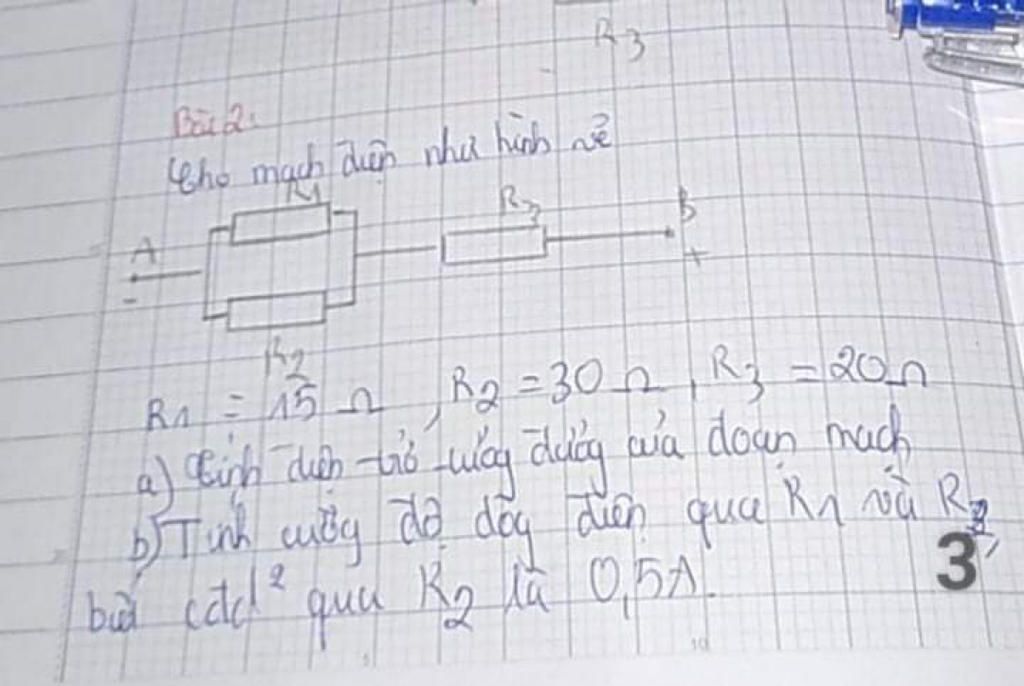 R3
Bài 2:
Cho mạch điện như hình vẽ
R1
R3
B
A
+
-
R2
R1 = 15 Ω, R2 = 30 Ω, R3 = 20 Ω
a) Tính điện trở tương đương của đoạn mạch
b) Tính cường độ dòng điện qua R1 và R3,
3
biết cđdđ² qua R2 là 0,5A.